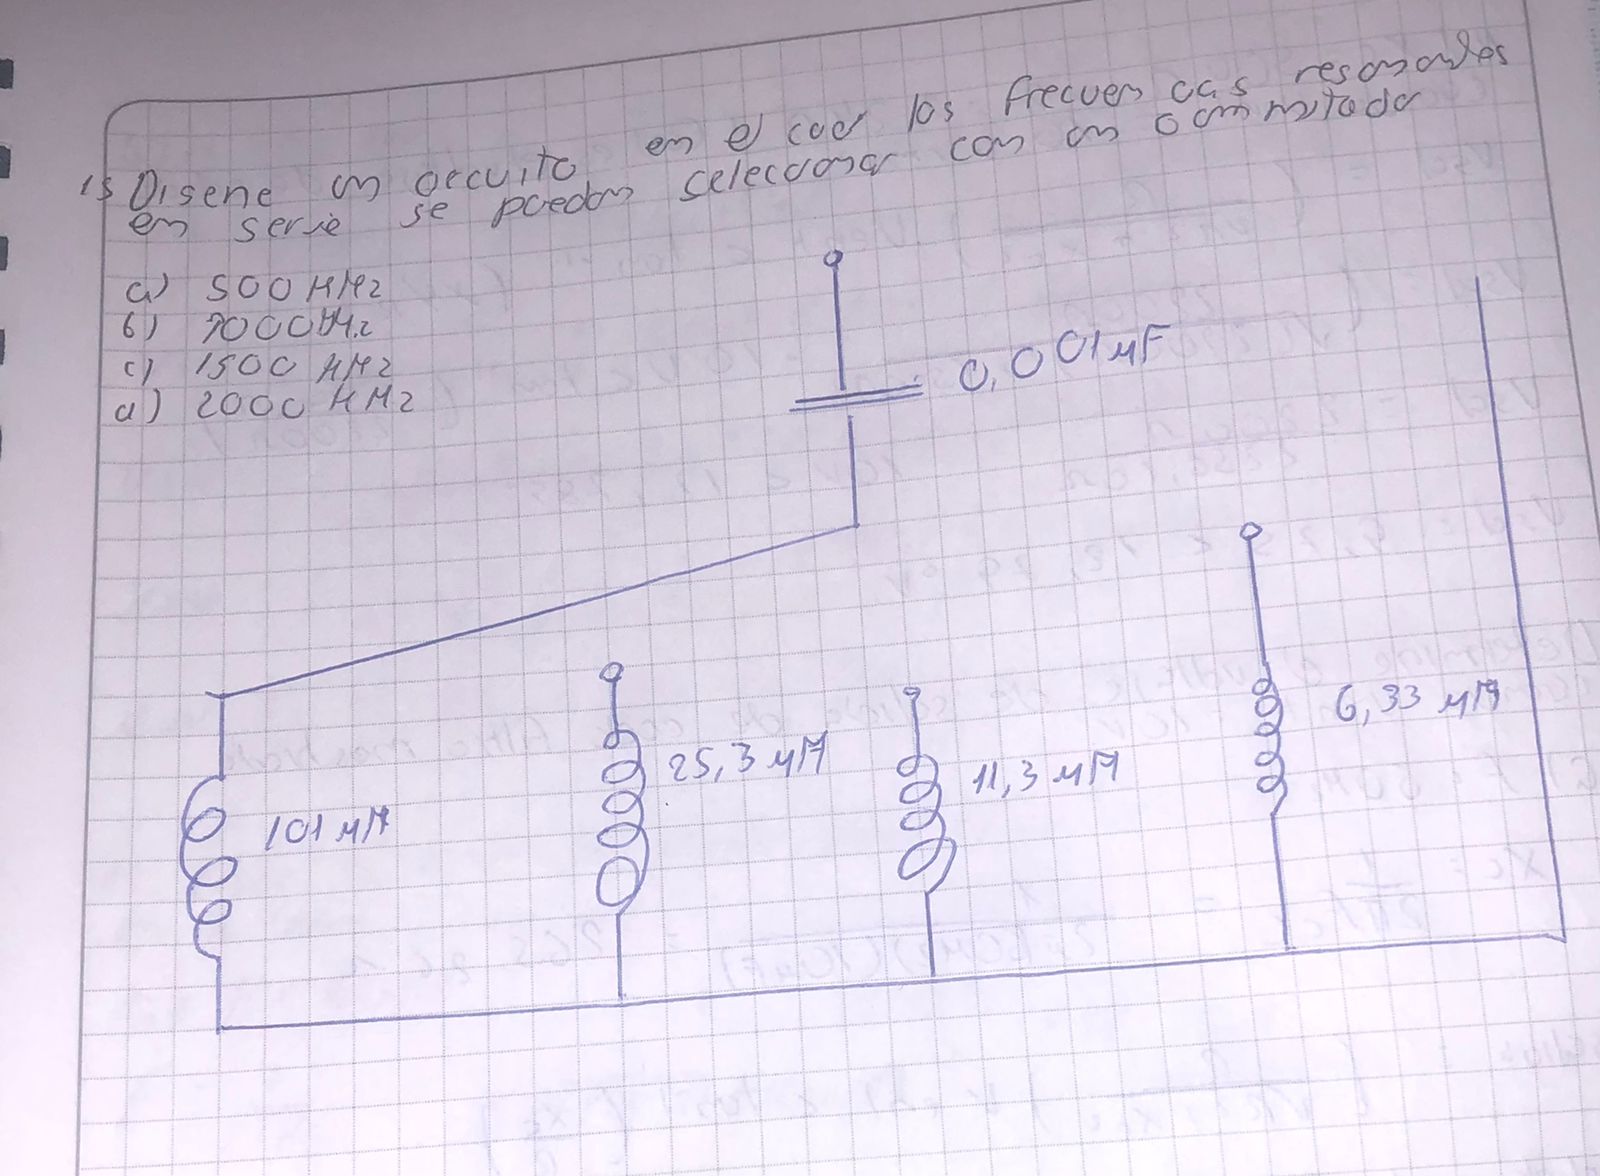 15 Disene un circuito en el cual las frecuencias resonantes
en serie se puedan seleccionar con un conmutador
a) 500 KHz
b) 1000 KHz
c) 1500 KHz
d) 2000 KHz
0,001 μF
101 μH
25,3 μH
11,3 μH
6,33 μH